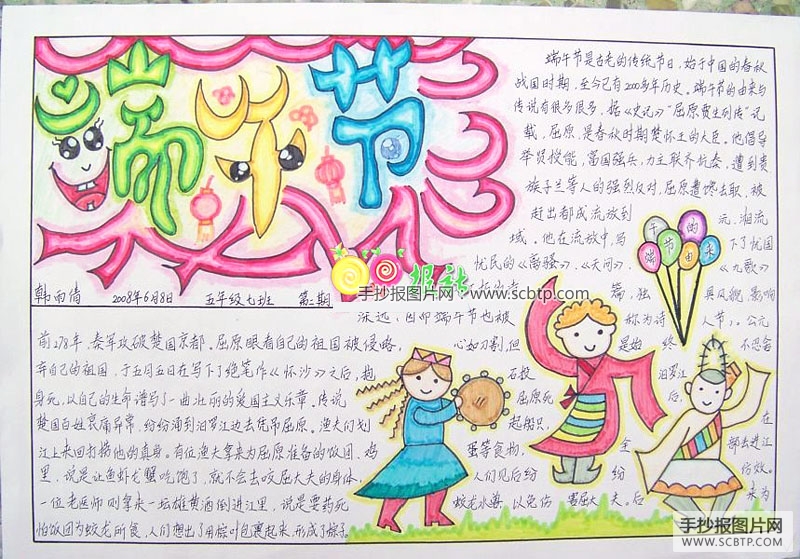 端午节
端午节是古老的传统节日，始于中国的春秋
战国时期，至今已有2000多年历史。端午节的由来与
传说有很多很多，据《史记》"屈原贾生列传"记
载，屈原，是春秋时期楚怀王的大臣。他倡导
举贤授能，富国强兵，力主联齐抗秦，遭到贵
族子兰等人的强烈反对，屈原遭馋去职，被
赶出都成流放到 元、湘流
域。他在流放中，写 下了忧国
忧民的《离骚》、《天问》、 《九歌》
篇，独 具风貌，影响
深远，因卬端午节也被 称为诗 人节）。公元
端午节的由来
韩雨倩 2008年6月8日 五年级七班 第二期
报社
手抄报图片网-www.scbtp.com
前278年，秦军攻破楚国京都，屈原眼看自己的祖国被侵略， 心如刀割，但 是始 终 不忍舍
弃自己的祖国，于五月五日在写下了绝笔作《怀沙》之后，抱 石投 汨罗江
身死，以自己的生命谱写了一曲壮丽的爱国主义乐章。传说 屈原死 后，
楚国百姓哀痛异常，纷纷涌到汨罗江边去凭吊屈原。渔夫们划 起船只， 在
江上来回打捞他的真身。有位渔夫拿来为屈原准备的饭团、鸡 蛋等食物， 全 部丢进江
里，说是让鱼虾龙蟹吃饱了，就不会去咬屈大夫的身体， 人们见后纷 纷 仿效。
一位老医师则拿来一坛雄黄酒倒进江里，说是要药死 蛟龙水兽，以免伤 害屈大 夫。后 来为
怕饭团为蛟龙所食，人们想出了用棕叶包裹起来，形成了棕子。
手抄报图片网
WWW.SCBTP.COM